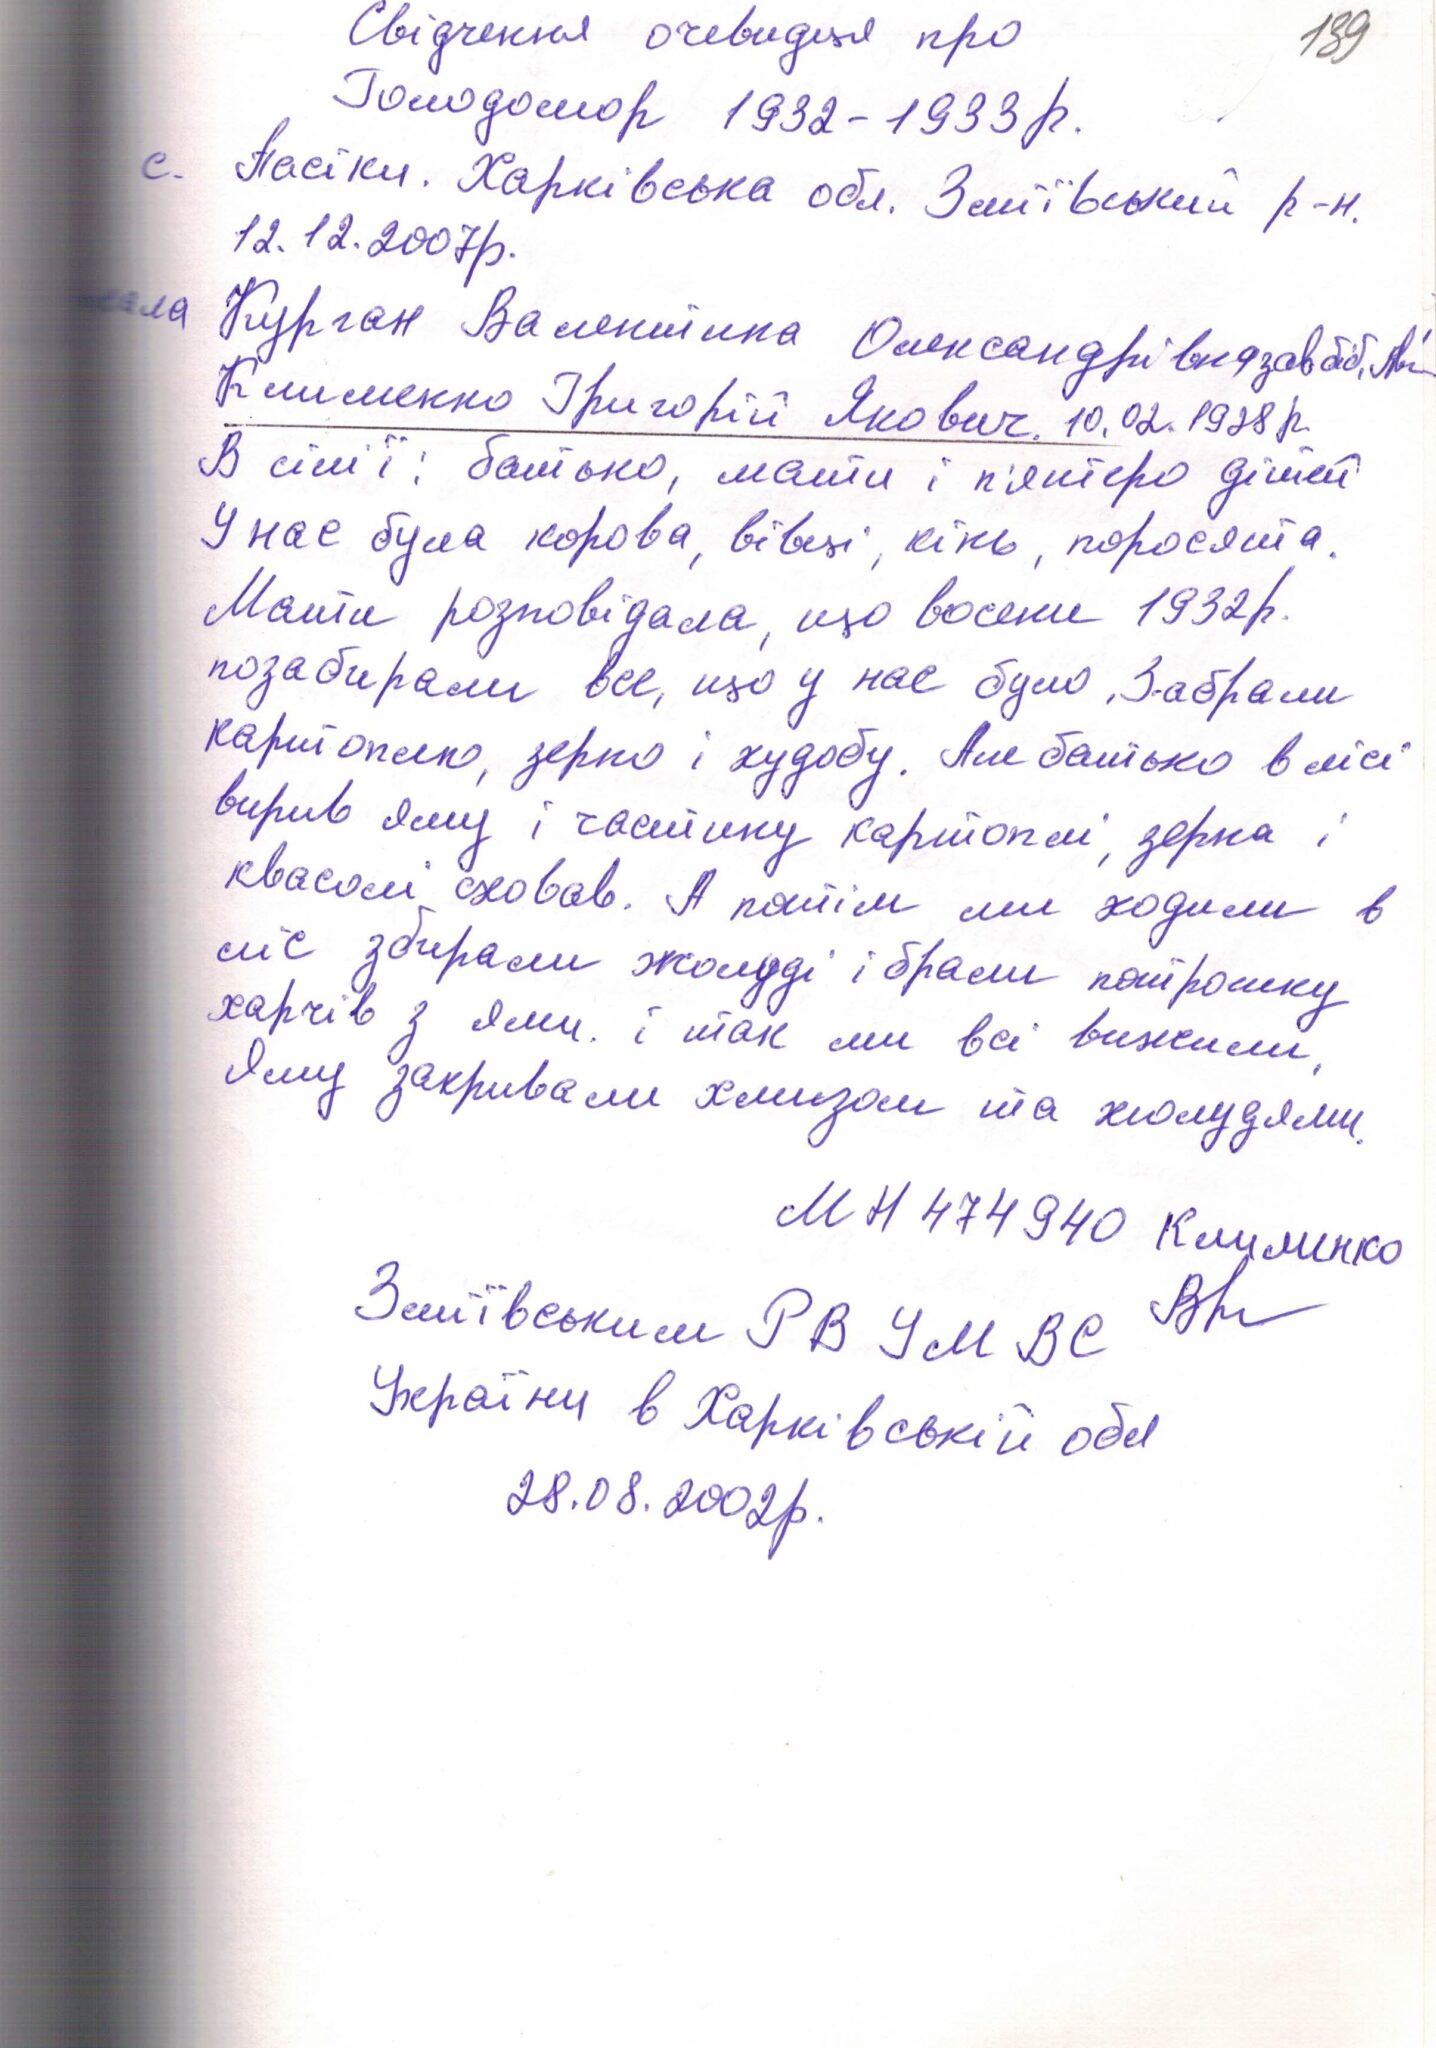 139
Свідчення очевидця про
Голодомор 1932-1933р.
с. Пасіки. Харківська обл. Зміївський р-н.
12.12.2007р.
Курган Валентина Олександрівна зав біб.
Клименко Григорій Якович. 10.02.1928р.
В сім'ї: батько, мати і п'ятеро дітей
У нас була корова, вівці, кінь, поросята.
Мати розповідала, що восени 1932р.
позабирали все, що у нас було. Забрали
картоплю, зерно і худобу. Але батько в лісі
вирив яму і частину картоплі, зерна і
квасолі сховав. А потім ми ходили в
ліс збирали жолуді і брали потрошку
харчів з ями. і так ми всі вижили.
Яму закривали хмизом та жолудями.
МН 474940 Клименко
Зміївським РВ УМВС
України в Харківській обл
28.08.2002р.